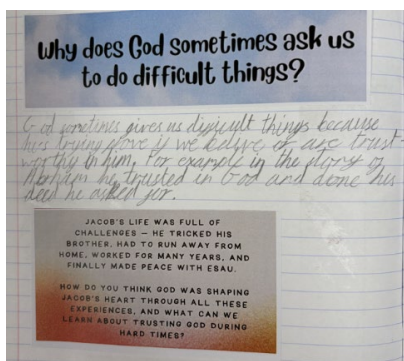 Why does God sometimes ask us
to do difficult things?
God sometimes gives us difficult things because
he's trying prove if we belive or are trust-
worthy in him. For example in the story of
Abraham he trusted in God and done his
deed he asked for.
JACOB'S LIFE WAS FULL OF
CHALLENGES – HE TRICKED HIS
BROTHER, HAD TO RUN AWAY FROM
HOME, WORKED FOR MANY YEARS, AND
FINALLY MADE PEACE WITH ESAU.
HOW DO YOU THINK GOD WAS SHAPING
JACOB'S HEART THROUGH ALL THESE
EXPERIENCES, AND WHAT CAN WE
LEARN ABOUT TRUSTING GOD DURING
HARD TIMES?